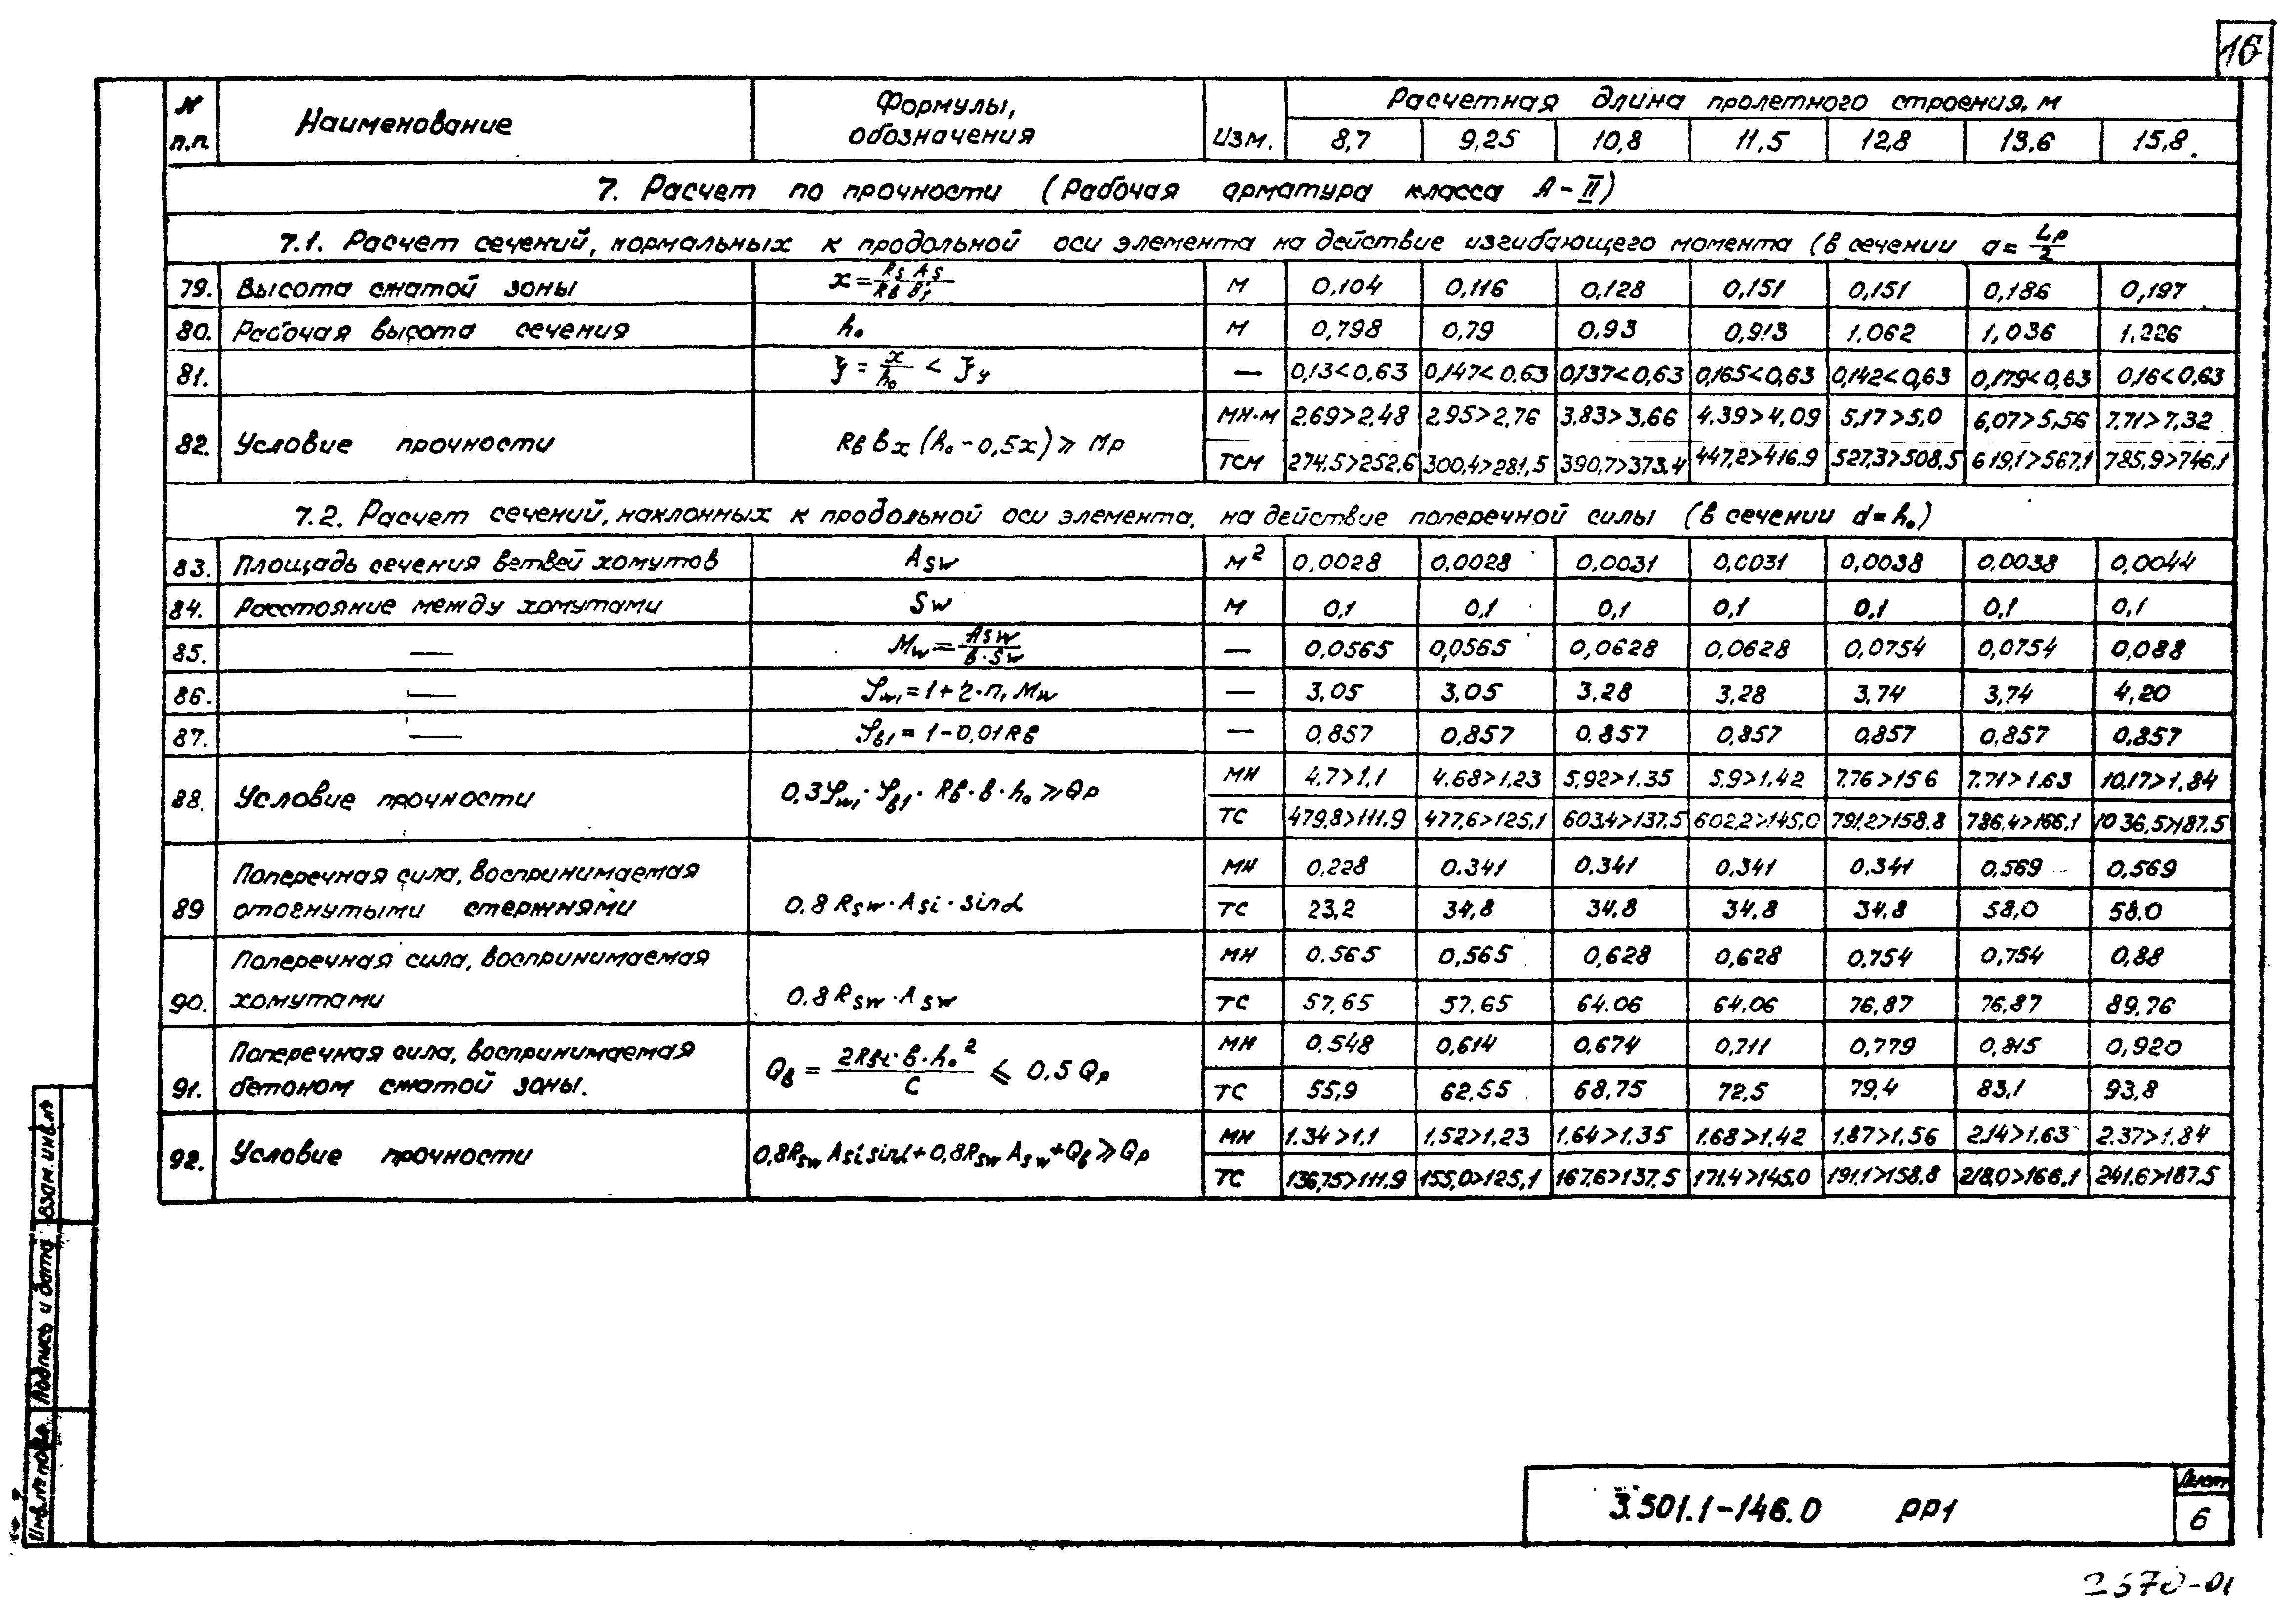 16
N п.п. Наименование Формулы, обозначения Изм. Расчетная длина пролетного строения, м
8,7 9,25 10,8 11,5 12,8 13,6 15,8
7. Расчет по прочности (Рабочая арматура класса А-II)
7.1. Расчет сечений, нормальных к продольной оси элемента на действие изгибающего момента (в сечении a = Lp/2
79. Высота сжатой зоны x = Rs As / Rb b'f м 0,104 0,116 0,128 0,151 0,151 0,186 0,197
80. Рабочая высота сечения h₀ м 0,798 0,79 0,93 0,913 1,062 1,036 1,226
81. ξ = x/h₀ < ξy — 0,13<0,63 0,147<0,63 0,137<0,63 0,165<0,63 0,142<0,63 0,179<0,63 0,16<0,63
82. Условие прочности Rb bx (h₀ - 0,5x) ⩾ Mp
МН·м 2,69>2,48 2,95>2,76 3,83>3,66 4,39>4,09 5,17>5,0 6,07>5,56 7,71>7,32
тсм 274,5>252,6 300,4>281,5 390,7>373,4 447,2>416,9 527,3>508,5 619,1>567,1 785,9>746,1
7.2. Расчет сечений, наклонных к продольной оси элемента, на действие поперечной силы (в сечении d = h₀)
83. Площадь сечения ветвей хомутов Asw м² 0,0028 0,0028 0,0031 0,0031 0,0038 0,0038 0,0044
84. Расстояние между хомутами Sw м 0,1 0,1 0,1 0,1 0,1 0,1 0,1
85. — Mw = Asw / b·Sw — 0,0565 0,0565 0,0628 0,0628 0,0754 0,0754 0,088
86. — φw1 = 1 + η·n₁ Mw — 3,05 3,05 3,28 3,28 3,74 3,74 4,20
87. — φb1 = 1 - 0,01Rb — 0,857 0,857 0,857 0,857 0,857 0,857 0,857
88. Условие прочности 0,3φw1·φb1·Rb·b·h₀ ⩾ Qp
МН 4,7>1,1 4,68>1,23 5,92>1,35 5,9>1,42 7,76>156 7,71>1,63 10,17>1,84
ТС 479,8>111,9 477,6>125,1 603,4>137,5 602,2>145,0 791,2>158,8 786,4>166,1 1036,5>187,5
89 Поперечная сила, воспринимаемая отогнутыми стержнями 0,8 Rsw·Asi·sinα
МН 0,228 0,341 0,341 0,341 0,341 0,569 0,569
ТС 23,2 34,8 34,8 34,8 34,8 58,0 58,0
90. Поперечная сила, воспринимаемая хомутами 0,8 Rsw·Asw
МН 0,565 0,565 0,628 0,628 0,754 0,754 0,88
ТС 57,65 57,65 64,06 64,06 76,87 76,87 89,76
91. Поперечная сила, воспринимаемая бетоном сжатой зоны. Qb = 2Rbt·b·h₀² / C ⩽ 0,5 Qp
МН 0,548 0,614 0,674 0,711 0,779 0,815 0,920
ТС 55,9 62,55 68,75 72,5 79,4 83,1 93,8
92. Условие прочности 0,8Rsw Asi sinα + 0,8Rsw Asw + Qb ⩾ Qp
МН 1,34>1,1 1,52>1,23 1,64>1,35 1,68>1,42 1,87>1,56 2,14>1,63 2,37>1,84
ТС 136,75>111,9 155,0>125,1 167,6>137,5 171,4>145,0 191,1>158,8 218,0>166,1 241,6>187,5
Взам. инв. №
Подпись и дата
Инв. № подл.
3.501.1-146.0 РР1
Лист
6
2570-01